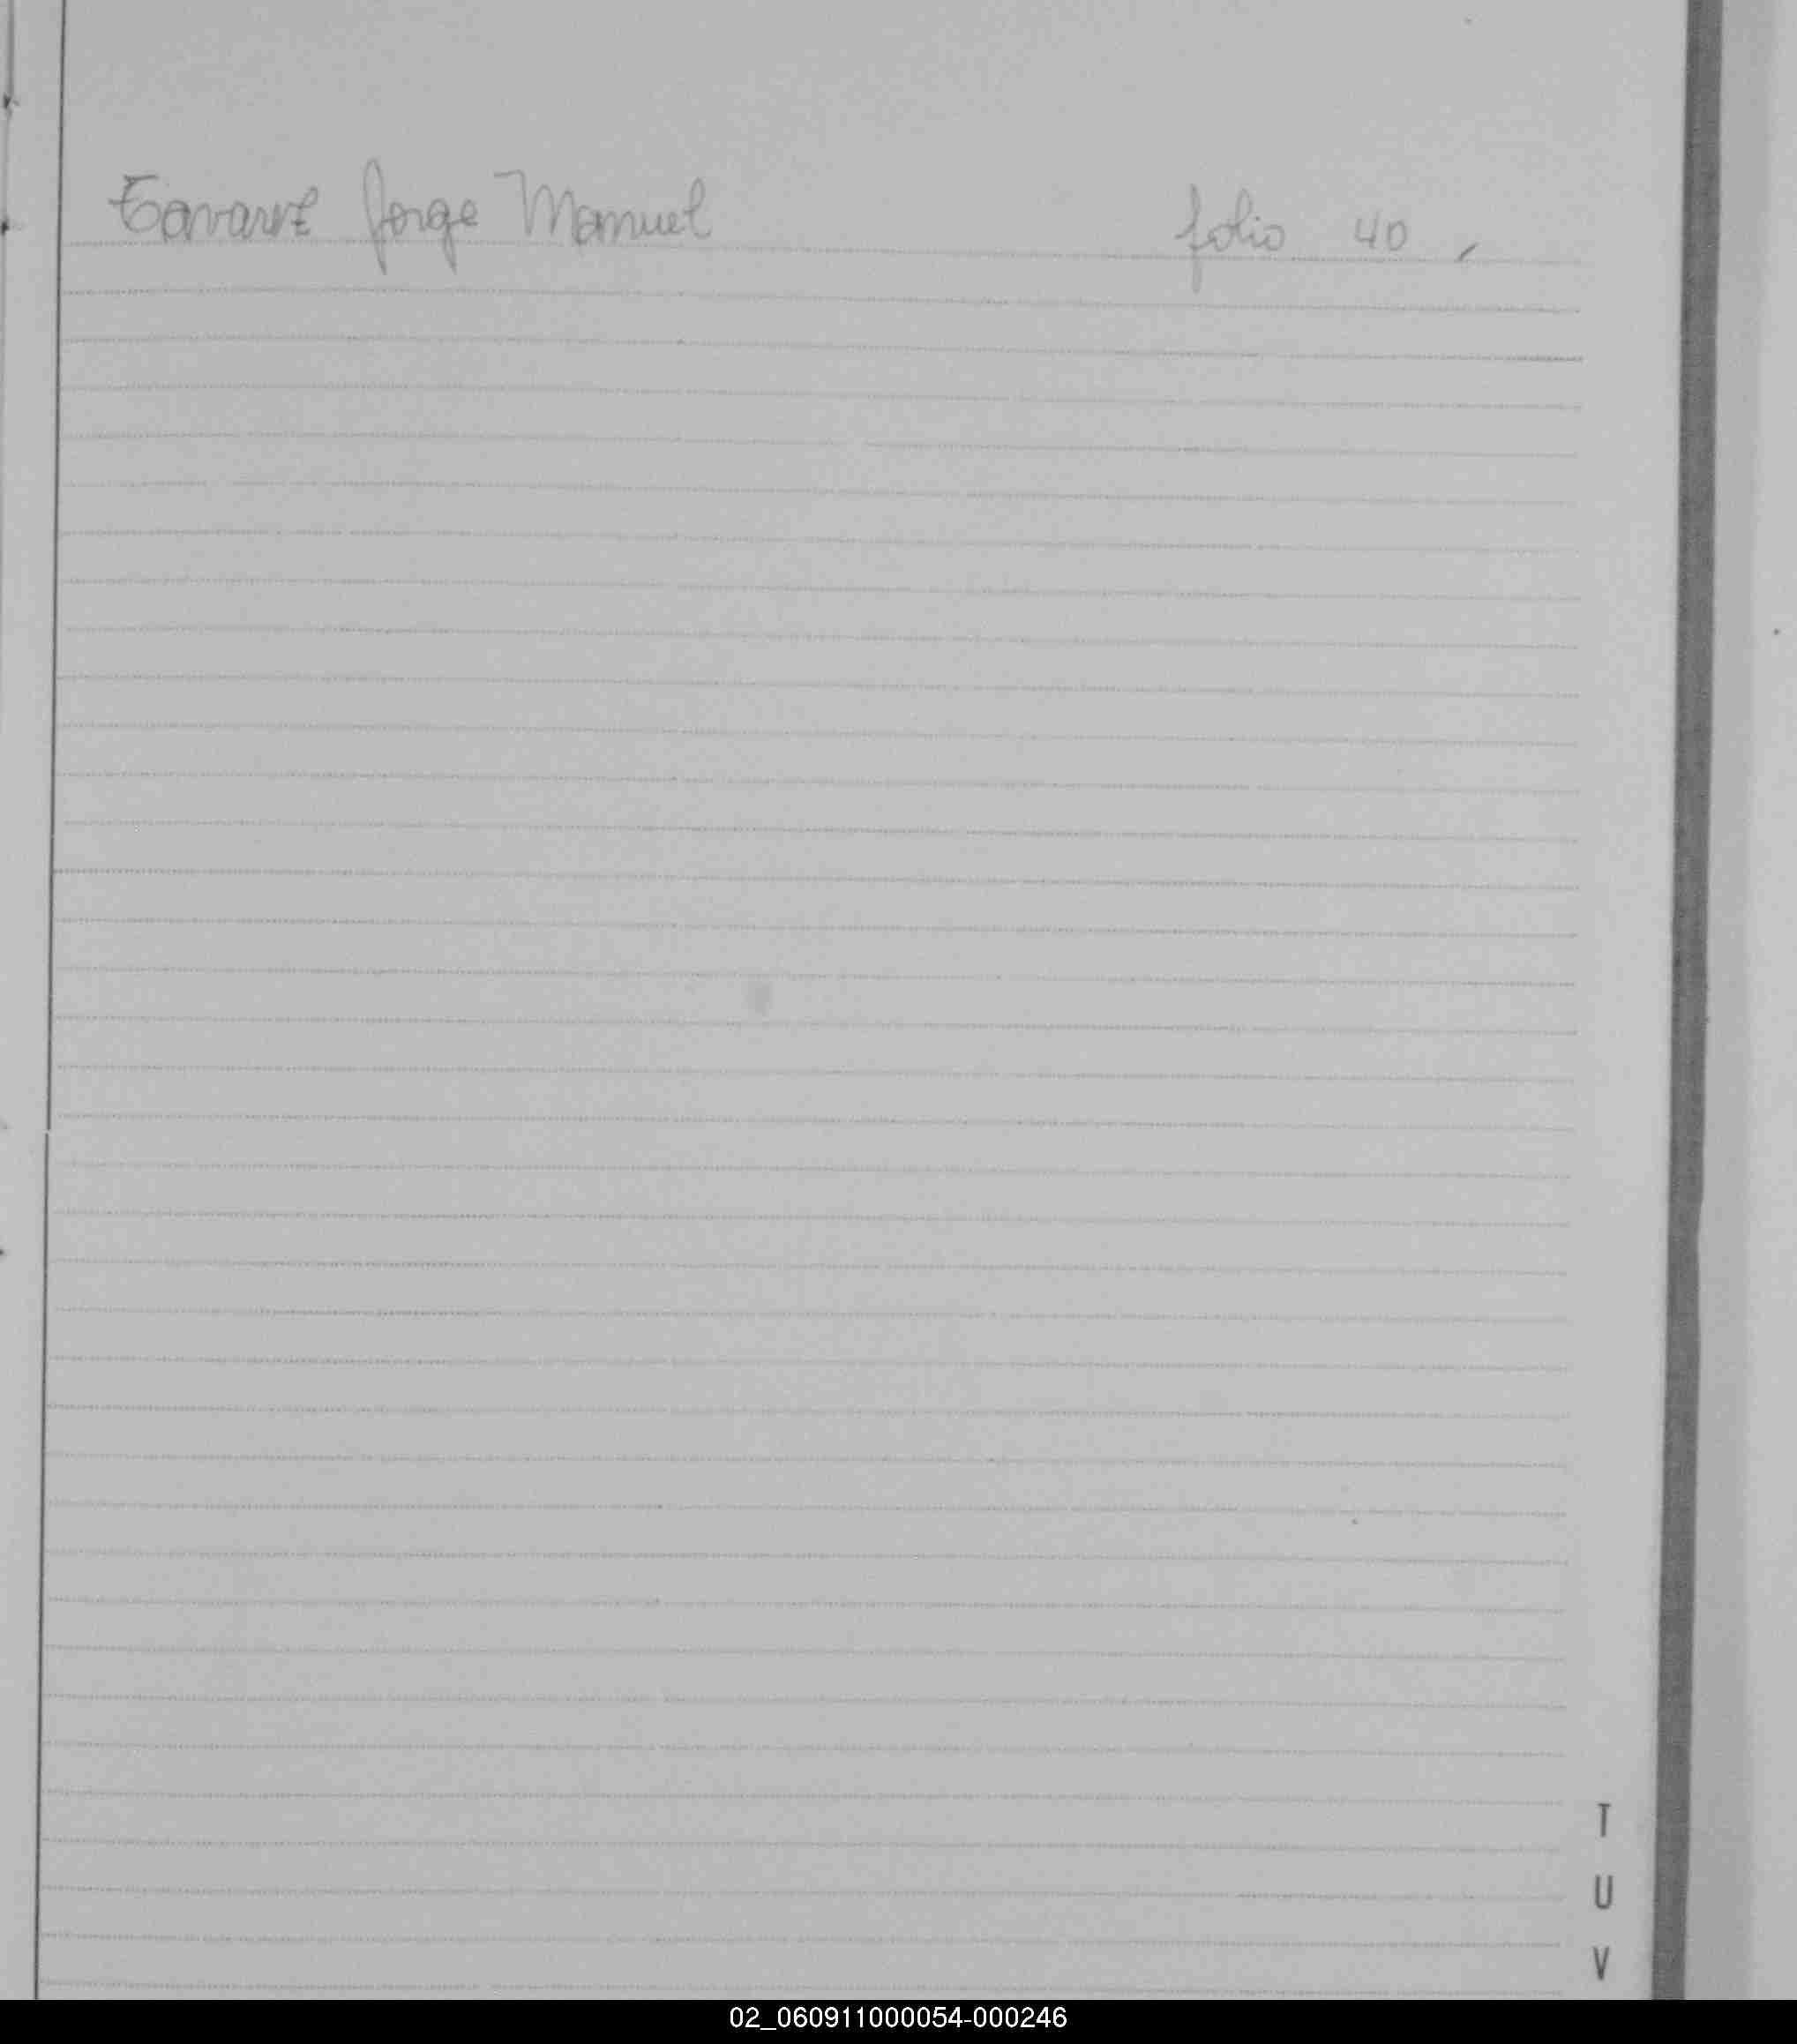 Tavarez Jorge Manuel folio 40
T
U
V
02_060911000054-000246